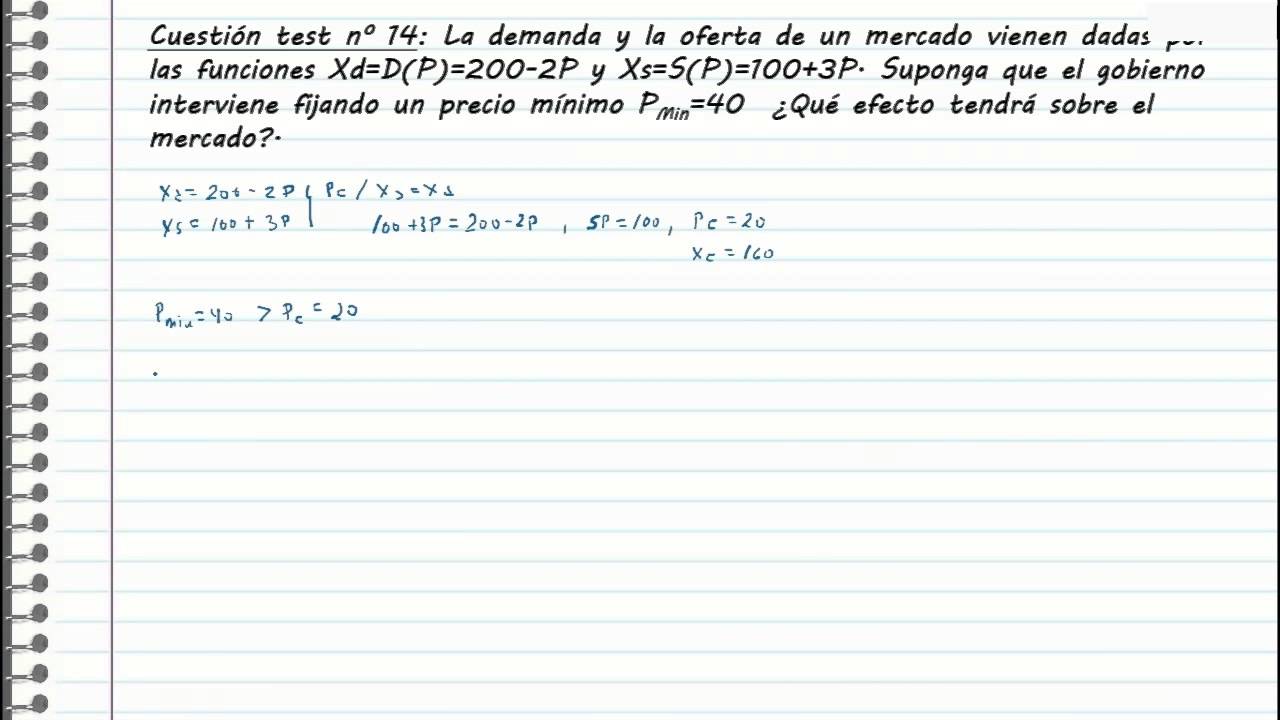 Cuestión test nº 14: La demanda y la oferta de un mercado vienen dadas por
las funciones Xd=D(P)=200-2P y Xs=S(P)=100+3P. Suponga que el gobierno
interviene fijando un precio mínimo PMin=40 ¿Qué efecto tendrá sobre el
mercado?.
Xd = 200 - 2P } Pc / Xd = Xs
Xs = 100 + 3P 100 + 3P = 200 - 2P , 5P = 100 , Pc = 20
Xc = 160
Pmin = 40 > Pc = 20